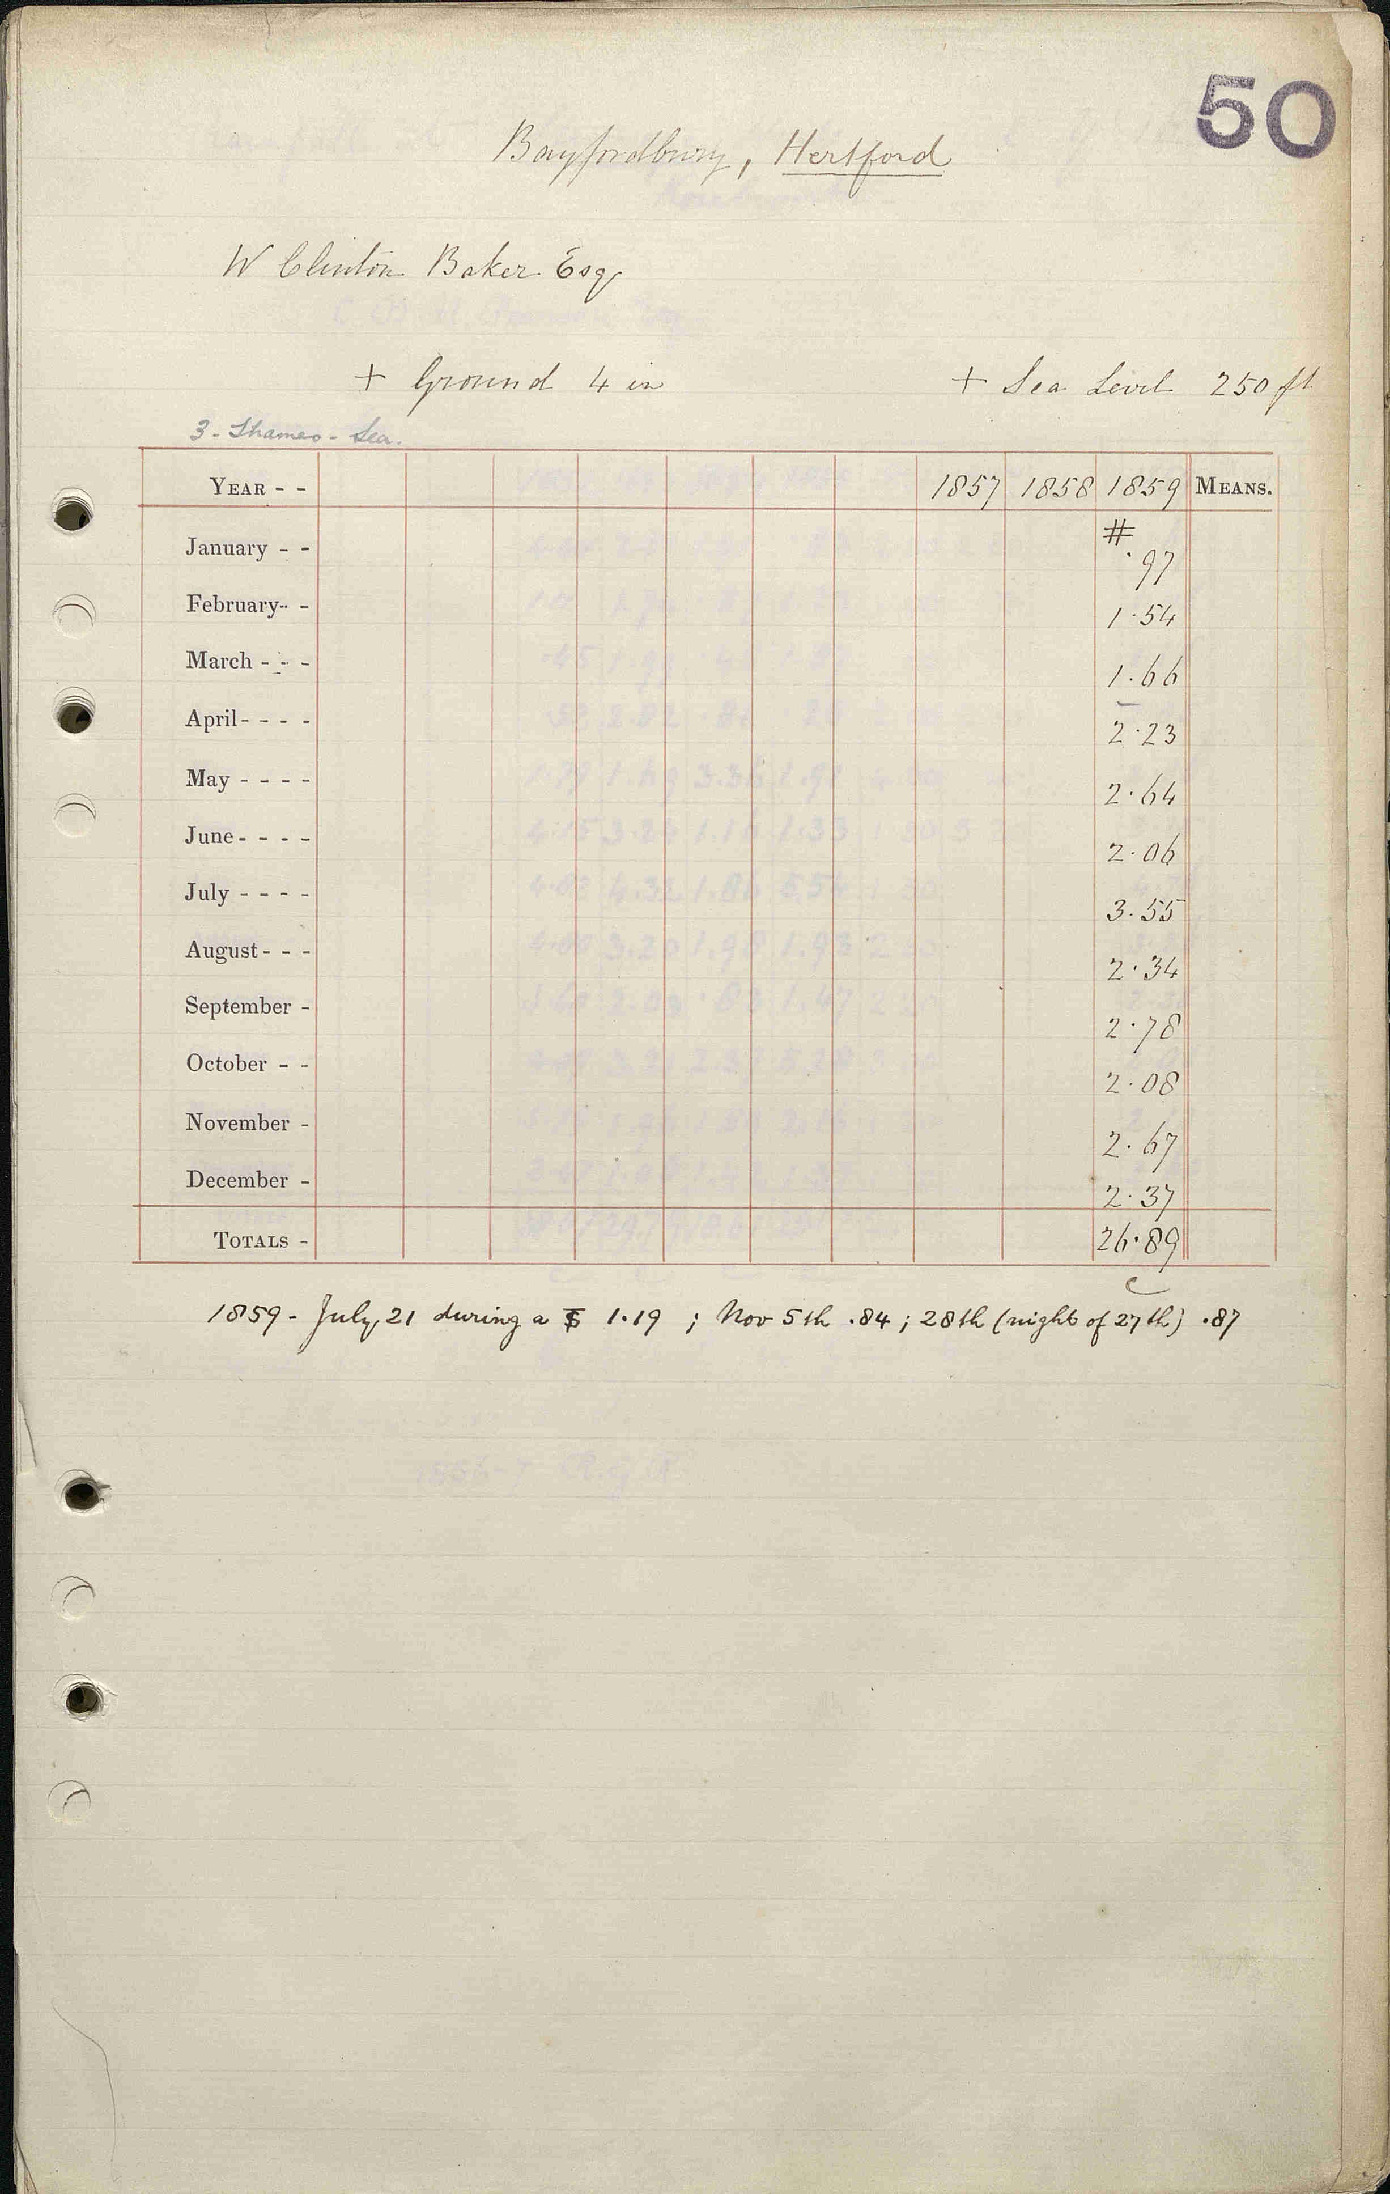 50
Bayfordbury, Hertford
W Clinton Baker Esq
+ Ground 4 in + Sea Level 250 ft
3 - Thames - Sea.
YEAR - - 1857 1858 1859 MEANS.
#
January - - .97
February - - 1.54
March - - - 1.66
April - - - - 2.23
May - - - - 2.64
June - - - - 2.06
July - - - - 3.55
August - - - 2.34
September - 2.78
October - - 2.08
November - 2.67
December - 2.37
TOTALS - 26.89
c
1859 - July 21 during a 1.19 ; Nov 5th .84 ; 28th (night of 27th) .87